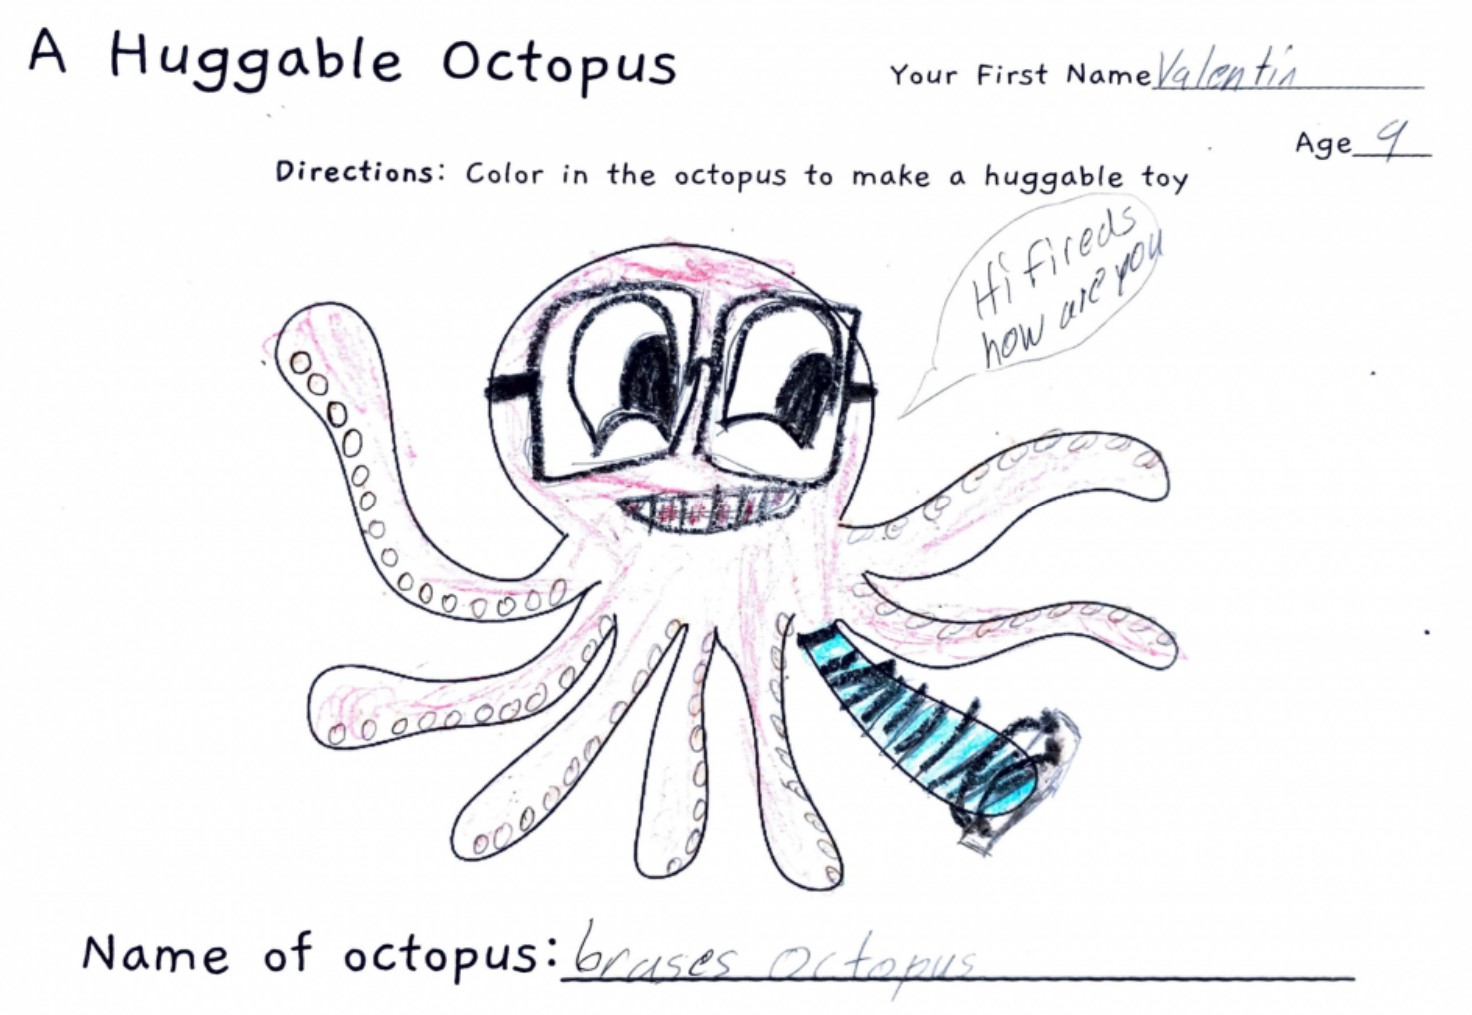 A Huggable Octopus
Your First Name Valentin
Age 9
Directions: Color in the octopus to make a huggable toy
Hi fireds
how are you
Name of octopus: brases octopus